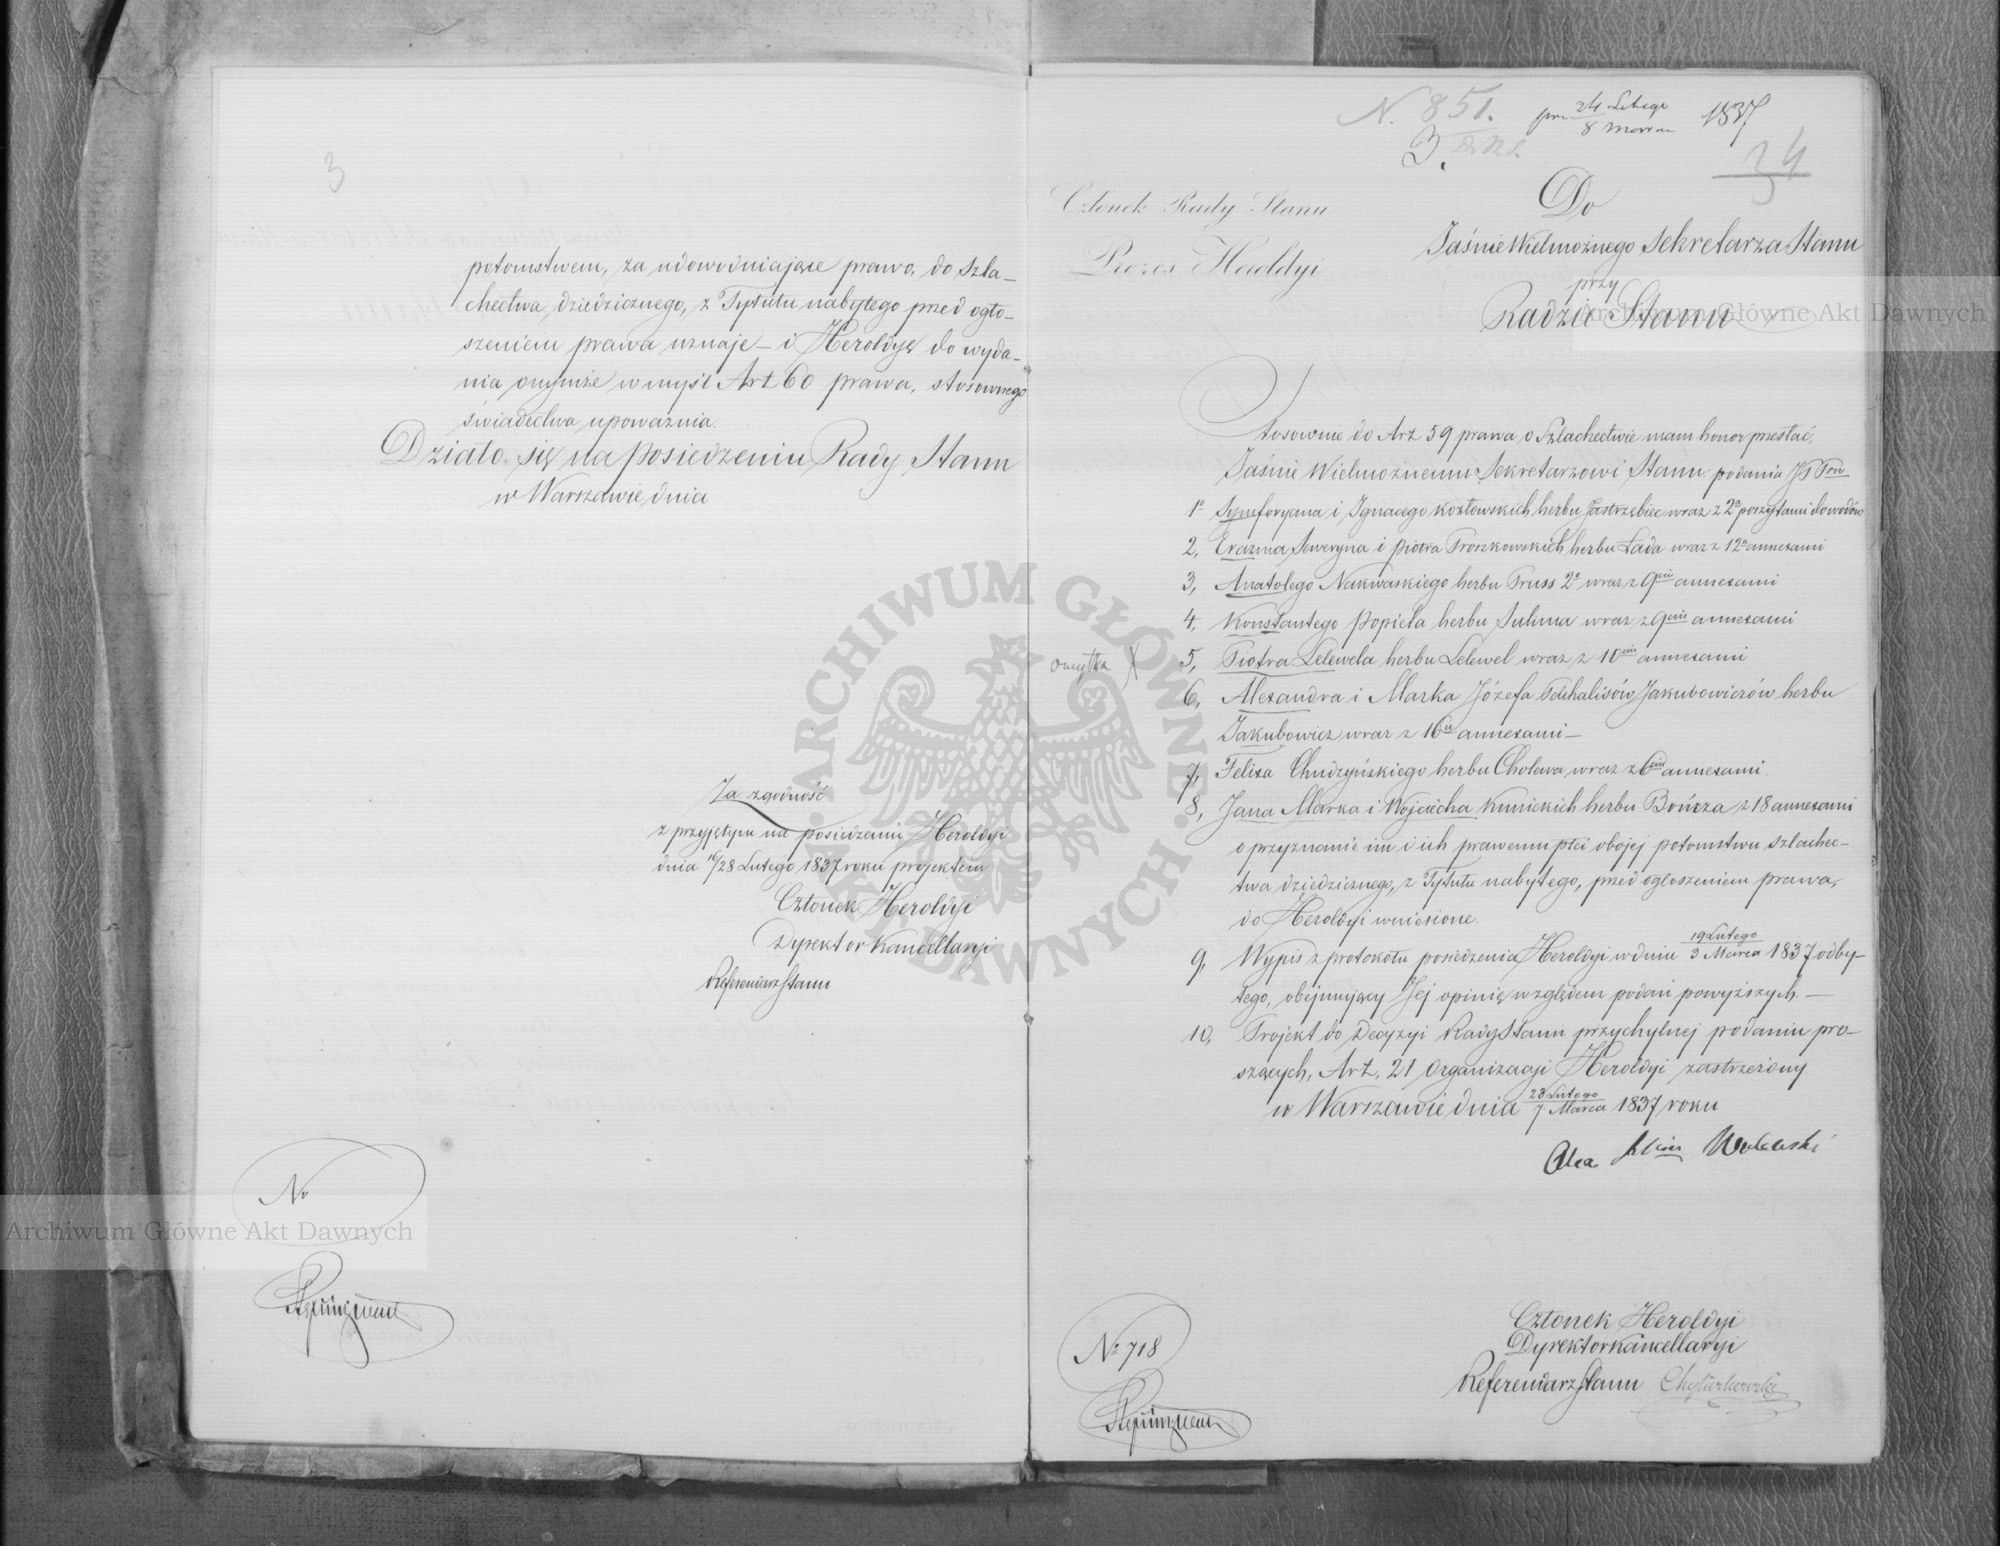 3
potomstwem, za udowodniające prawo, do szla-
chectwa dziedzicznego, z Tytułu nabytego przed ogło-
szeniem prawa uznaje – i Heroldyę do wyda-
nia onymże w myśl Art 60 prawa, stosownego
świadectwa upoważnia.
Działo się na posiedzeniu Rady Stanu
w Warszawie dnia
Za zgodność
z przyjętym na posiedzeniu Heroldyi
dnia 16/28 Lutego 1837 roku projektem
Członek Heroldyi
Dyrektor Kancellaryi
Referendarz Stanu
No
N. 851. 24 Lutego / 8 Marca 1837
3.
Członek Rady Stanu
Prezes Heroldyi
Do
Jaśnie Wielmożnego Sekretarza Stanu
przy
Radzie Stanu
Stosownie do Art 59 prawa o Szlachectwie mam honor przesłać,
Jaśnie Wielmożnemu Sekretarzowi Stanu podania
1o Symforyana i Ignacego Kozłowskich herbu Jastrzębiec wraz z 2a poszytami dowodów
2, Erazma Seweryna i Piotra Proszkowskich herbu Łada wraz z 12a annexami
3, Anatolego Nakwaskiego herbu Pruss 2o wraz z 9ciu annexami
4, Konstantego Popiela herbu Sulima wraz z 9ciu annexami
omyłka X 5, Piotra Lelewela herbu Lelewel wraz z 10ciu annexami
6, Alexandra i Marka Józefa Paschalisów Jakubowiczów herbu
Jakubowicz wraz z 16tu annexami –
7, Felixa Chudzyńskiego herbu Cholewa, wraz z 6ciu annexami
8, Jana Marka i Wojciecha Kunickich herbu Bończa z 18 annexami
o przyznanie im i ich prawemu płci obojej potomstwu szlachec-
twa dziedzicznego, z Tytułu nabytego, przed ogłoszeniem prawa,
do Heroldyi wniesione.
9, Wypis z protokołu posiedzenia Heroldyi w dniu 19 Lutego / 3 Marca 1837 odby-
tego, obejmujący Jej opinię względem podań powyższych. –
10, Projekt do Decyzyi Rady Stanu przychylnej podaniu pro-
szących, Art. 21 Organizacyi Heroldyi zastrzeżony.
w Warszawie dnia 23 Lutego / 7 Marca 1837 roku
No 718
Członek Heroldyi
Dyrektor Kancellaryi
Referendarz Stanu
Archiwum Główne Akt Dawnych
Archiwum Główne Akt Dawnych
ARCHIWUM GŁÓWNE AKT DAWNYCH